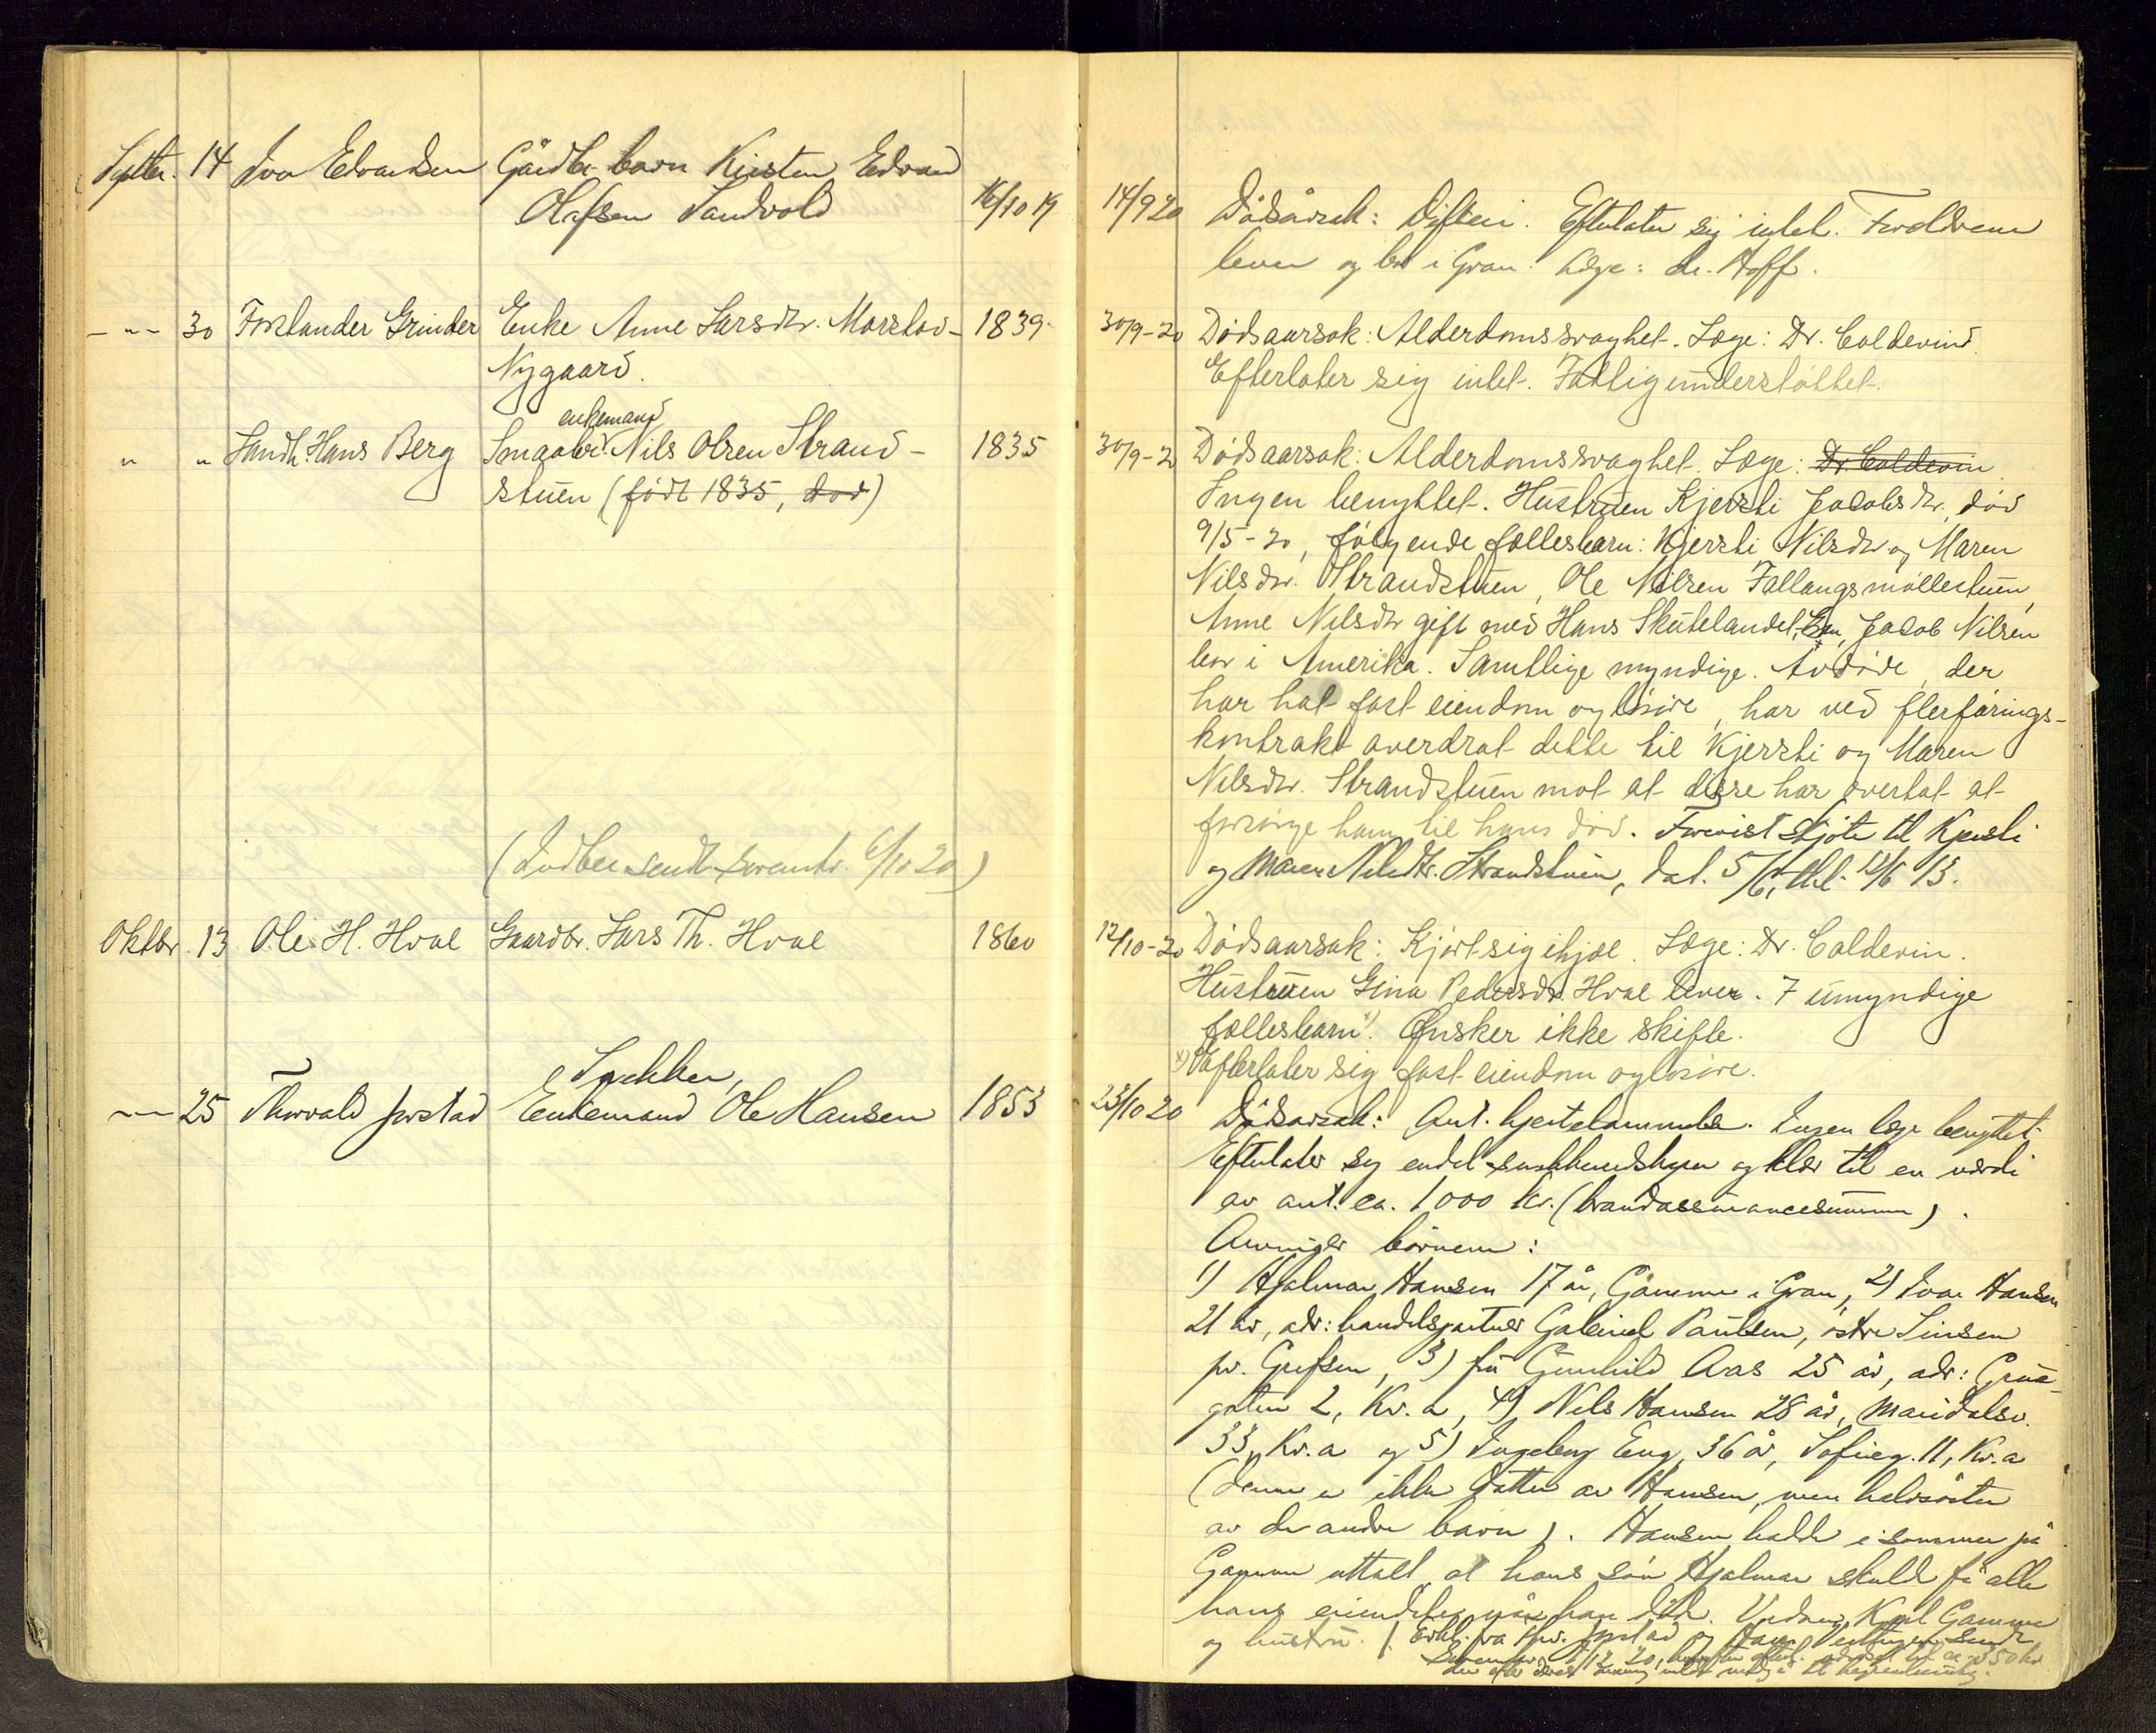 Septbr. 14 Ivar Edvardsen Gårdbr. barn Kirsten Edvard
Olafsen Sandvold 16/10 19
14/9 20 Dødsårsak: Difteri. Efterlater sig intet. Foreldrene
lever og bor i Gran. Læge: dr. Hoff.
-"- 30 Forstander Grinder Enke Anne Larsdtr. Morstad- 1839
Nygaard.
30/9-20 Dødsaarsak: Alderdomssvaghet. Læge: Dr. Coldevin.
Efterlater sig intet. Fattigunderstøttet.
" " Landh. Hans Berg Smaabr. enkemand Nils Olsen Strand- 1835
stuen (født 1835, død)
30/9-20 Dødsaarsak: Alderdomssvaghet. Læge: Dr. Coldevin
Ingen benyttet. Hustruen Kjersti Jacobsdtr. død
9/5-20, følgende fællesbarn: Kjersti Nilsdtr. og Maren
Nilsdtr. Strandstuen, Ole Nilsen Fallangsmøllestuen,
Anne Nilsdtr gift med Hans Skutelandet, Jacob Nilsen
bor i Amerika. Samtlige myndige. Avdøde, der
har hat fast eiendom og løsøre, har ved flerførings-
kontrakt overdrat dette til Kjersti og Maren
Nilsdtr. Strandstuen mot at disse har overtat at
forsørge ham til hans død. Forevist skjøte til Kjersti
og Maren Nilsdtr. Strandstuen, dat. 5/6, thl. 12/6 13.
(Indber. sendt sorenskr. 6/10 20)
Oktbr. 13 Ole H. Hval Gaardbr. Lars Th. Hval 1860
12/10-20 Dødsaarsak: Kjørt sig ihjel. Læge: Dr. Coldevin.
Hustruen Gina Pedersdtr. Hval lever. 7 umyndige
fællesbarn x). Ønsker ikke skifte.
x) Efterlater sig fast eiendom og løsøre.
-"- 25 Thorvald Jorstad Snekker,
Enkemand Ole Hansen 1853
23/10 20 Dødsårsak: Ant. hjertelammelse. Ingen læge benyttet.
Efterlater sig endel snekkerredskaper og klær til en værdi
av ant. ca. 1000 kr. (brandassurancesummen).
Arvinger børnene:
1) Hjalmar Hansen 17 år, Gamme i Gran, 2) Ivar Hansen
21 år, adr: handelsgartner Gabriel Paulsen, østre Sinsen
pr. Grefsen, 3) fru Gunhild Aas 25 år, adr: Grue-
gaten 2, Kr.a, 4) Nils Hansen 28 år, Maridalsv.
33, Kr.a og 5) Ingeborg Eng 36 år, Sofieg. 11, Kr.a
(denne er ikke datter av Hansen, men halvsøster
av de andre barn). Hansen hadde i sommer på
Gamme uttalt at hans søn Hjalmar skulde få alle
hans eiendeler når han døde. Vidner, Karl Gamme
og hustru. Erkl. fra Thv. Jorstad og Hans sendt